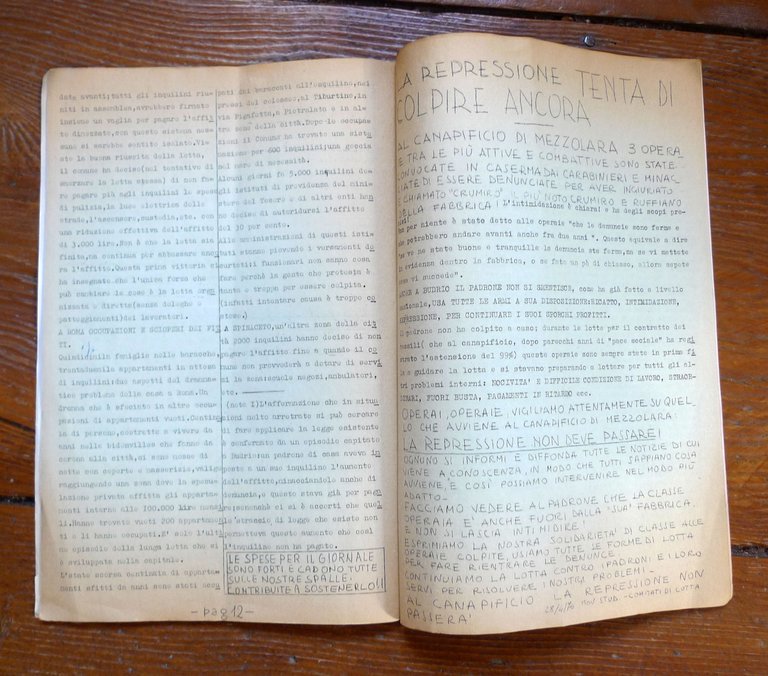 date avanti;tutti gli inquilini riu-
niti in assemblea,avrebbero firmato
insieme un vaglia per pagare l'affit
to dimezzato,con questo sistema nes-
suno si sarebbe sentito isolato.Vis-
ta la buona riuscita della lotta,
il comune ha deciso(nel tentativo di
smorzare la lotta stessa) di non fa-
re pagare più agli inquilini le spese
di pulizia,la luce elettrica delle
strade,l'ascensore,custodia,etc. con
una riduzione effettiva dell'affitto
di 3.000 lire.Non è che la lotta sia
finita,ma continua per abbassare anco
ra l'affitto.Questa prima vittoria ci
ha insegnato che l'unica forza che
può cambiare le cose è la lotta orga
nizzata e diretta(senza deleghe o
patteggiamenti)dei lavoratori.
A ROMA OCCUPAZIONI E SCIOPERI DEI FIT
TI.
Quindicimila famiglie nelle baracche,
trentaduemila appartamenti in attesa
di inquilini:due aspetti del dramma-
tico problema della casa a Roma.Un
dramma che è sfociato in altre occu-
pazioni di appartamenti vuoti.Centina
ia di persone,costrette a vivere da
anni nelle bidonvilles che fanno da
corona alla città,si sono mosse di
notte con coperte e masserizie,
raggiungendo una zona dove la specu-
lazione privata affitta gli apparta-
menti intorno alle 100.000 lire mensi
li.Hanno trovato vuoti 200 appartamen
ti e li hanno occupati.E' solo l'ulti
mo episodio della lunga lotta che si
è sviluppata nella capitale.
L'estate scorsa centinaia di apparta-
menti sfitti da anni sono stati occu
pati dai baraccati all'esquilino,nei
pressi del colosseo,al Tiburtino,in
via Pigafetta,a Pietralata e in al-
tre zone della città.Dopo le occupaz
ioni il Comune ha trovato una siste
mazione per 600 inquilini;una goccia
nel mare di necessità.
Alcuni giorni fa 5.000 inquilini de-
gli istituti di previdenza del minis-
tero del tesoro e di altri enti han
no deciso di autoridursi l'affitto
del 30 per cento.
Alle amministrazioni di questi isti-
tuti stanno piovendo i versamenti de
curtati.I funzionari non sanno cosa
fare perchè la gente che protesta è
tanta e troppa per essere colpita.
(Infatti intentare causa è troppo co
stoso.)
A SPINACETO,un'altra zona della cit
tà 2000 inquilini hanno deciso di non
pagare l'affitto fino a quando il co
mune non provvederà a dotare di servi
zi la zona:scuole negozi,ambulatori,
etc.
(note I)L'affermazione che in situa
zioni molto arretrate si può cercare
di fare applicare la legge esistente
è confermata da un episodio capitato
a Budrio:un padrone di casa aveva im
posto a un suo inquilino l'aumento
dell'affitto,minacciandolo anche di
denuncia,e questo stava già per pag
l'inquilino non ha pagato.
LE SPESE PER IL GIORNALE
SONO FORTI E CADONO TUTTE
SULLE NOSTRE SPALLE,
CONTRIBUITE A SOSTENERLO!!
- pag 12 -
LA REPRESSIONE TENTA DI
COLPIRE ANCORA
AL CANAPIFICIO DI MEZZOLARA 3 OPERA
IE TRA LE PIÙ ATTIVE E COMBATTIVE SONO STATE
CONVOCATE IN CASERMA DAI CARABINIERI E MINAC
CIATE DI ESSERE DENUNCIATE PER AVER INGIURIATO
E CHIAMATO "CRUMIRO" IL PIU' NOTO CRUMIRO E RUFFIANO
DELLA FABBRICA! L'intimidazione è chiara! e ha degli scopi pre-
Non per niente è stato detto alle operaie "che le denunce sono ferme e
che potrebbero andare avanti anche fra due anni". Questo equivale a dire
"se ve ne state buone e tranquille la denuncia sta ferma,ma se vi mettete
in evidenza dentro la fabbrica, o se fate un pò di chiasso, allora sapete
cosa vi succede".
ANCHE A BUDRIO IL PADRONE NON SI SMENTISCE, come ha già fatto a livello
nazionale,USA TUTTE LE ARMI A SUA DISPOSIZIONE:RICATTO, INTIMIDAZIONE,
REPRESSIONE, PER CONTINUARE I SUOI SPORCHI PROFITTI.
Il padrone non ha colpito a caso: durante le lotte per il contratto dei
tessili( che al canapificio, dopo parecchi anni di "pace sociale" ha regi
strato l'astensione del 99%) queste operaie sono sempre state in prima fi
la a guidare la lotta e si stavano preparando a lottare per tutti gli al-
tri problemi interni: NOCIVITA' E DIFFICILE CONDIZIONE DI LAVORO, STRAOR-
DINARI, FUORI BUSTA, PAGAMENTI IN RITARDO ecc.
OPERAI, OPERAIE, VIGILIAMO ATTENTAMENTE SU QUEL
LO CHE AVVIENE AL CANAPIFICIO DI MEZZOLARA:
LA REPRESSIONE NON DEVE PASSARE!
OGNUNO SI INFORMI E DIFFONDA TUTTE LE NOTIZIE DI CUI
VIENE A CONOSCENZA, IN MODO CHE TUTTI SAPPIANO COSA
AVVIENE, E COSÌ POSSIAMO INTERVENIRE NEL MODO PIÙ
ADATTO.
FACCIAMO VEDERE AL PADRONE CHE LA CLASSE
OPERAIA E' ANCHE FUORI DALLA "SUA" FABBRICA
E NON SI LASCIA INTIMIDIRE!
ESPRIMIAMO LA NOSTRA SOLIDARIETÀ DI CLASSE ALLE
OPERAIE COLPITE, USIAMO TUTTE LE FORME DI LOTTA
PER FARE RIENTRARE LE DENUNCE.
CONTINUIAMO LA LOTTA CONTRO I PADRONI E I LORO
SERVI PER RISOLVERE I NOSTRI PROBLEMI.
AL CANAPIFICIO LA REPRESSIONE NON
PASSERA'
28/4/70 MOV. STUD. - COMITATI DI LOTTA